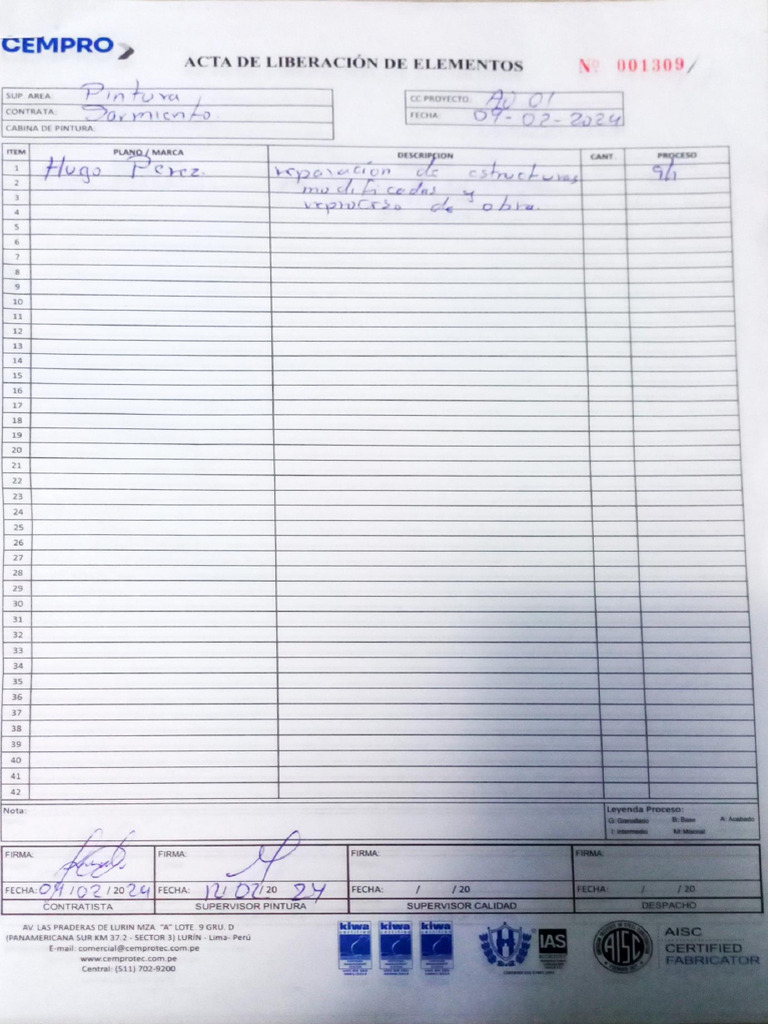 CEMPRO
ACTA DE LIBERACIÓN DE ELEMENTOS
Nº 001309
SUP. AREA: Pintura
CONTRATA: Sarmiento
CABINA DE PINTURA:
CC PROYECTO: AJ 01
FECHA: 09-02-2024
ITEM PLANO / MARCA DESCRIPCION CANT. PROCESO
1 Hugo Perez. reparación de estructuras
2 modificadas y
3 reproceso de obra.
4
5
6
7
8
9
10
11
12
13
14
15
16
17
18
19
20
21
22
23
24
25
26
27
28
29
30
31
32
33
34
35
36
37
38
39
40
41
42
Nota:
Leyenda Proceso:
G: Granallado B: Base A: Acabado
I: Intermedio M: Manual
FIRMA: FIRMA: FIRMA: FIRMA:
FECHA: 09/02/2024 FECHA: 12/02/2024 FECHA: / /20 FECHA: / /20
CONTRATISTA SUPERVISOR PINTURA SUPERVISOR CALIDAD DESPACHO
AV. LAS PRADERAS DE LURIN MZA. "A" LOTE. 9 GRU. D
(PANAMERICANA SUR KM 37.2 - SECTOR 3) LURÍN - Lima- Perú
E-mail: comercial@cemprotec.com.pe
www.cemprotec.com.pe
Central: (511) 702-9200
kiwa kiwa kiwa
IAS
AISC
AISC
CERTIFIED
FABRICATOR